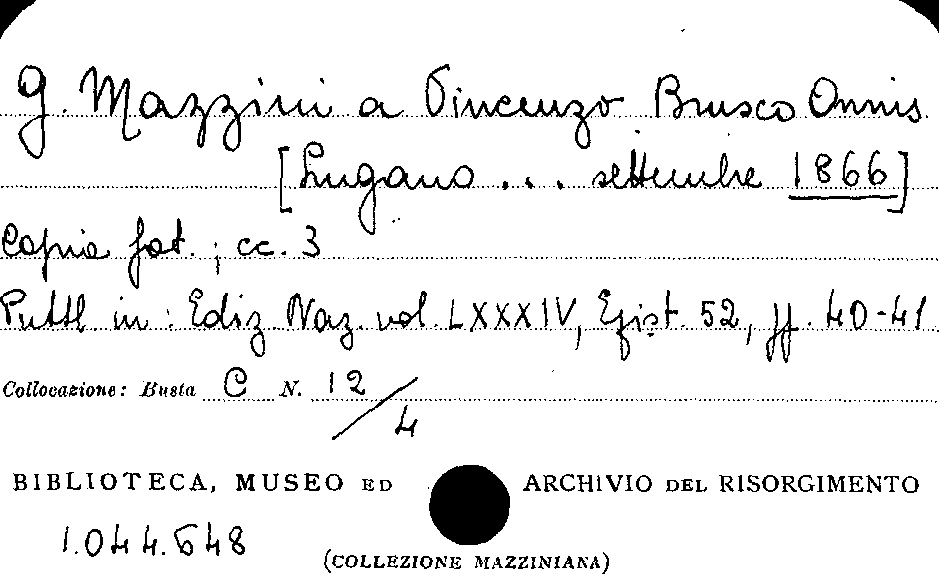 G. Mazzini a Vincenzo Brusco Onnis
[Lugano ... settembre 1866]
Copia fot.; cc. 3
Pubbl. in: Ediz. Naz. vol. LXXXIV, Epist. 52, pp. 40-41
Collocazione: Busta C N. 12/4
BIBLIOTECA, MUSEO ED ARCHIVIO DEL RISORGIMENTO
1.044.648
(COLLEZIONE MAZZINIANA)